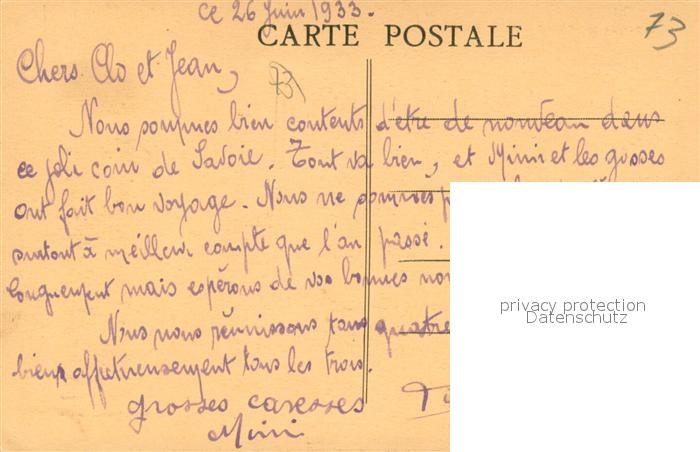 ce 26 Juin 1933.
CARTE POSTALE
73
Chers Clo et Jean,
73
Nous sommes bien contents d'être de nouveau dans
ce joli coin de Savoie. Tout va bien, et Mimi et les gosses
ont fait bon voyage. Nous ne sommes
surtout à meilleur compte que l'an passé.
longuement mais espérons de vos bonnes
privacy protection
Datenschutz
Nous nous réunissons tous quatre
bien affectueusement tous les trois.
grosses caresses
Mimi